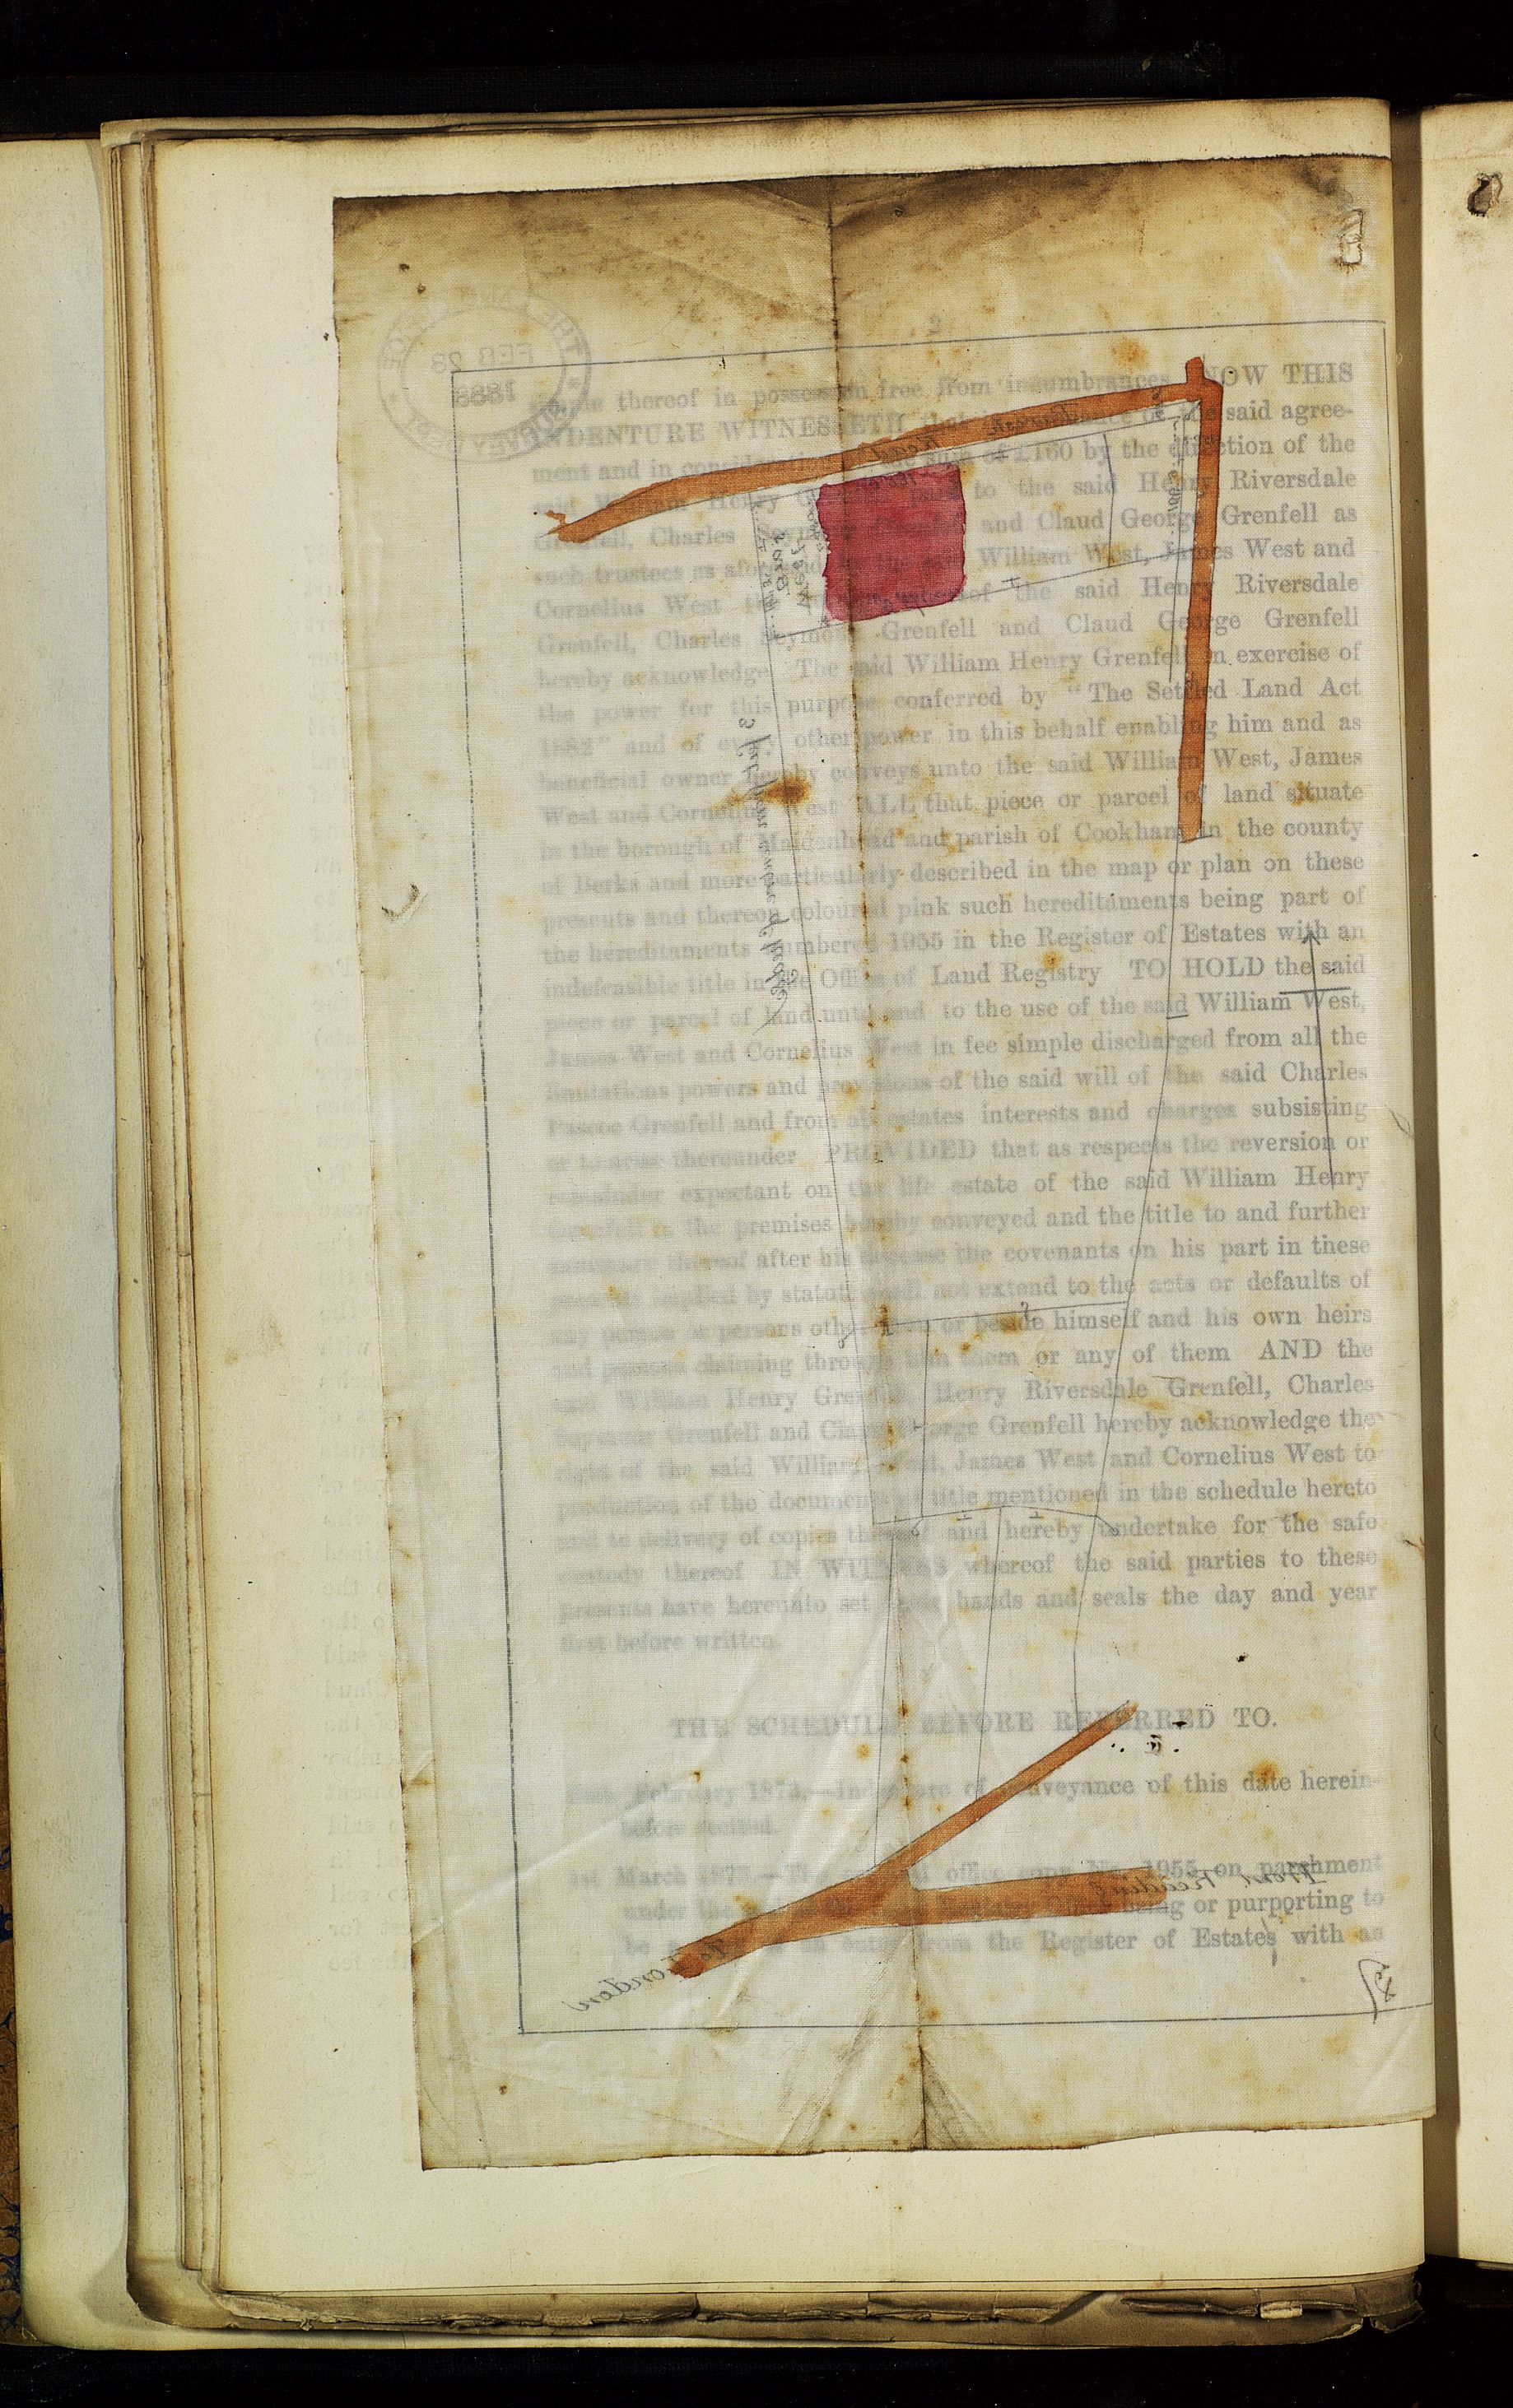 2
simple thereof in possession free from incumbrances NOW THIS
INDENTURE WITNESSETH that in pursuance of the said agree-
ment and in consideration of the sum of £160 by the direction of the
said William Henry Grenfell paid to the said Henry Riversdale
Grenfell, Charles Seymour Grenfell and Claud George Grenfell as
such trustees as aforesaid by the said William West, James West and
Cornelius West the receipt whereof the said Henry Riversdale
Grenfell, Charles Seymour Grenfell and Claud George Grenfell
hereby acknowledge The said William Henry Grenfell in exercise of
the power for this purpose conferred by "The Settled Land Act
1882" and of every other power in this behalf enabling him and as
beneficial owner hereby conveys unto the said William West, James
West and Cornelius West ALL that piece or parcel of land situate
in the borough of Maidenhead and parish of Cookham in the county
of Berks and more particularly described in the map or plan on these
presents and thereon coloured pink such hereditaments being part of
the hereditaments numbered 1955 in the Register of Estates with an
indefeasible title in the Office of Land Registry TO HOLD the said
piece or parcel of land unto and to the use of the said William West,
James West and Cornelius West in fee simple discharged from all the
limitations powers and provisions of the said will of the said Charles
Pascoe Grenfell and from all estates interests and charges subsisting
or to arise thereunder PROVIDED that as respects the reversion or
remainder expectant on the life estate of the said William Henry
Grenfell in the premises hereby conveyed and the title to and further
assurance thereof after his decease the covenants on his part in these
presents implied by statute shall not extend to the acts or defaults of
any person or persons other than or beside himself and his own heirs
and persons claiming through him them or any of them AND the
said William Henry Grenfell, Henry Riversdale Grenfell, Charles
Seymour Grenfell and Claud George Grenfell hereby acknowledge the
right of the said William West, James West and Cornelius West to
production of the documents of title mentioned in the schedule hereto
and to delivery of copies thereof and hereby undertake for the safe
custody thereof IN WITNESS whereof the said parties to these
presents have hereunto set their hands and seals the day and year
first before written.
THE SCHEDULE BEFORE REFERRED TO.
February 1873.—Indenture of conveyance of this date herein-
before recited.
1st March 187 office copy No. 1955 on parchment
under the being or purporting to
be an entry from the Register of Estates with an
FEB 23
1888
Road
From Reading
To London